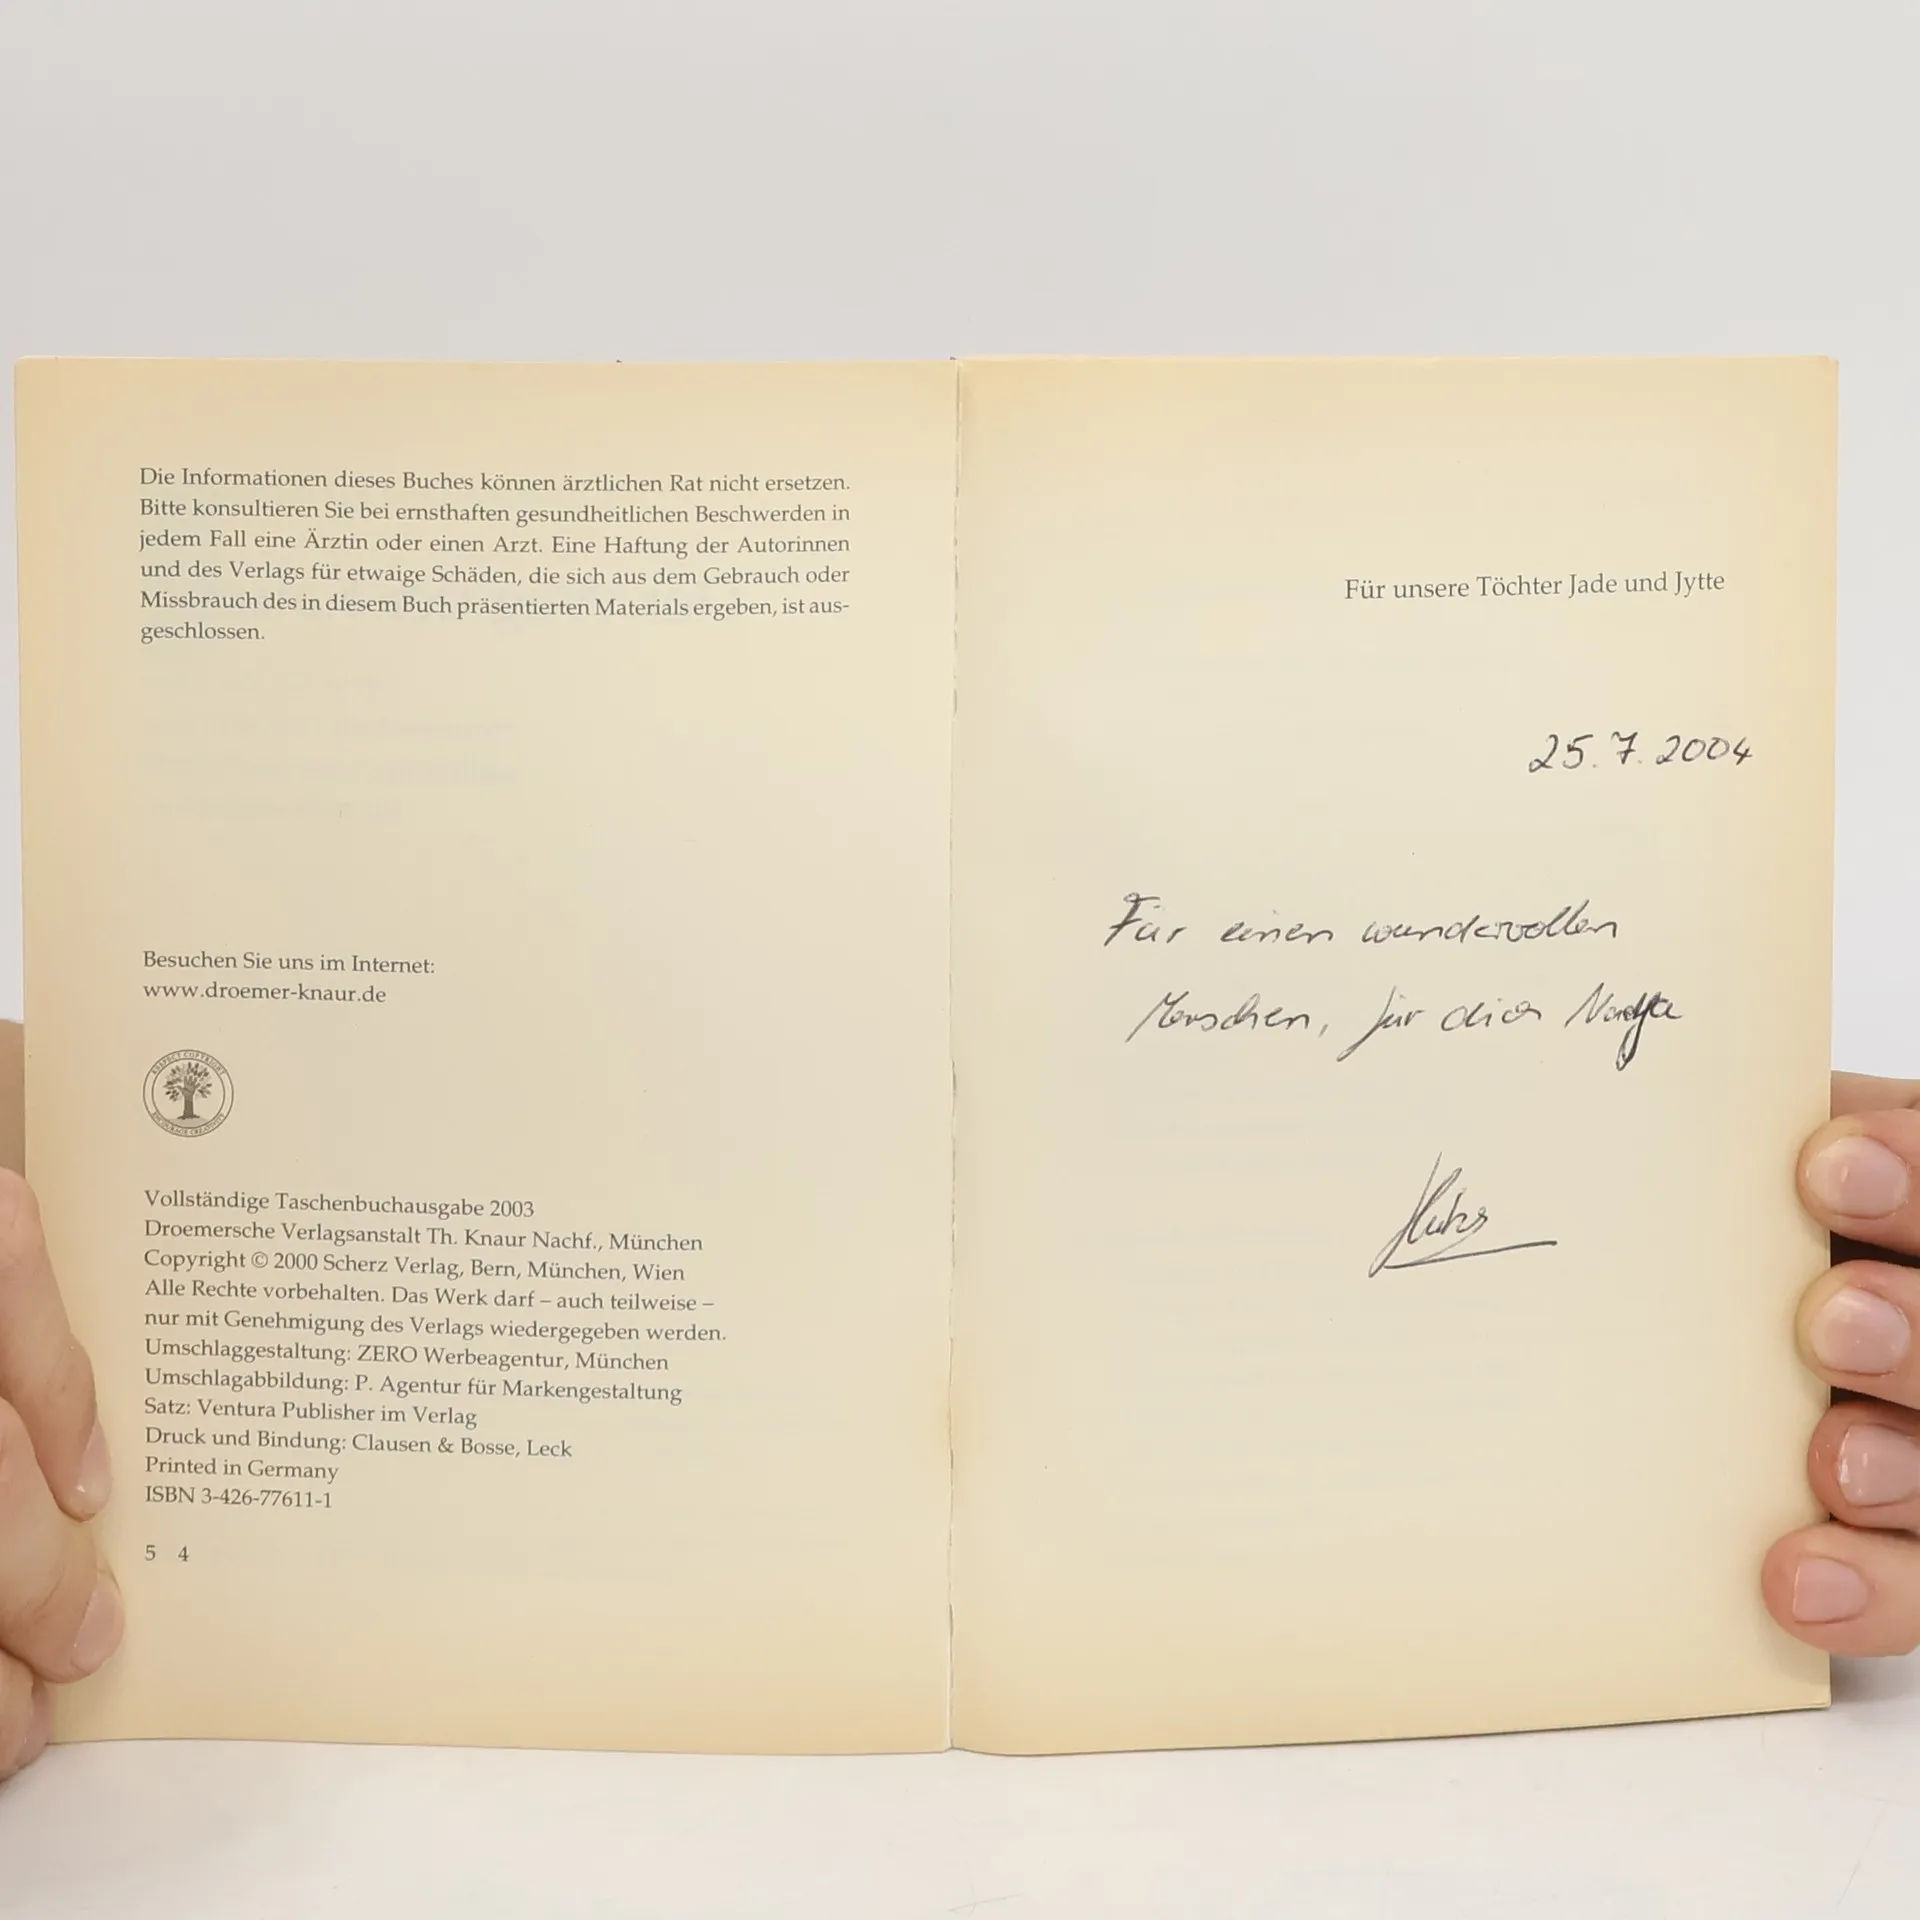 Die Informationen dieses Buches können ärztlichen Rat nicht ersetzen.
Bitte konsultieren Sie bei ernsthaften gesundheitlichen Beschwerden in
jedem Fall eine Ärztin oder einen Arzt. Eine Haftung der Autorinnen
und des Verlags für etwaige Schäden, die sich aus dem Gebrauch oder
Missbrauch des in diesem Buch präsentierten Materials ergeben, ist aus-
geschlossen.
Besuchen Sie uns im Internet:
www.droemer-knaur.de
RESPECT COPYRIGHT
ENCOURAGE CREATIVITY
Vollständige Taschenbuchausgabe 2003
Droemersche Verlagsanstalt Th. Knaur Nachf., München
Copyright © 2000 Scherz Verlag, Bern, München, Wien
Alle Rechte vorbehalten. Das Werk darf – auch teilweise –
nur mit Genehmigung des Verlags wiedergegeben werden.
Umschlaggestaltung: ZERO Werbeagentur, München
Umschlagabbildung: P. Agentur für Markengestaltung
Satz: Ventura Publisher im Verlag
Druck und Bindung: Clausen & Bosse, Leck
Printed in Germany
ISBN 3-426-77611-1
5 4
Für unsere Töchter Jade und Jytte
25.7.2004
Für einen wundervollen
Menschen, für dich Nadja